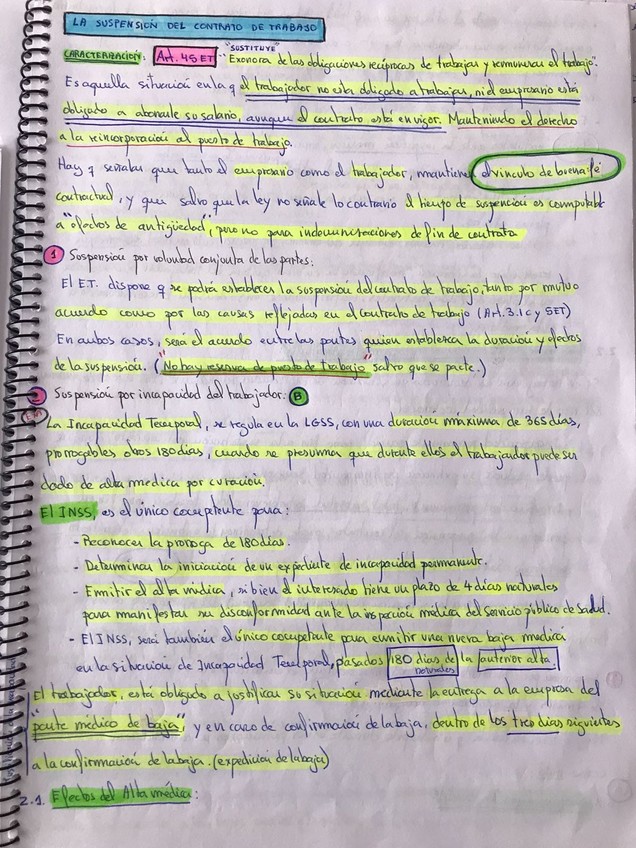 LA SUSPENSIÓN DEL CONTRATO DE TRABAJO
"SUSTITUYE"
CARACTERIZACIÓN: Art. 45 ET: "Exonera de las obligaciones recíprocas de trabajar y remunerar el trabajo".
Es aquella situación en la q el trabajador no está obligado a trabajar, ni el empresario está
obligado a abonarle su salario, aunque el contrato está en vigor. Manteniendo el derecho
a la reincorporación al puesto de trabajo.
Hay q señalar que tanto el empresario como el trabajador, mantienen el vínculo de buena fé
contractual, y que salvo que la ley no señale lo contrario el tiempo de suspención es computable
a "efectos de antigüedad", pero no para indemnizaciones de fin de contrato
1 Suspensión por voluntad conjunta de las partes:
El E.T. dispone q se podrá establecer la suspensión del contrato de trabajo, tanto por mutuo
acuerdo como por las causas reflejadas en el contrato de trabajo (Art. 3.1c y 5ET)
En ambos casos, será el acuerdo entre las partes quien establezca la duración y efectos
de la suspensión. ("No hay reserva de puesto de trabajo" salvo que se pacte.)
Suspensión por incapacidad del trabajador: B
La Incapacidad Temporal, se regula en la LGSS, con una duración máxima de 365 días,
prorrogables otros 180 días, cuando se presuma que durante ellos el trabajador puede ser
dado de alta médica por curación.
El INSS, es el único competente para:
- Reconocer la prórroga de 180 días.
- Determinar la iniciación de un expediente de incapacidad permanente.
- Emitir el alta médica, si bien el interesado tiene un plazo de 4 días naturales
para manifestar su disconformidad ante la inspeción médica del servicio público de Salud.
- El INSS, será también el único competente para emitir una nueva baja medica
en la situación de Incapacidad Temporal, pasados 180 días de la anterior alta.
naturales
El trabajador, está obligado a justificar su situación mediante la entrega a la empresa del
"parte médico de baja", y en caso de confirmación de la baja, dentro de los tres días siguientes
a la confirmación de la baja. (expedición de la baja)
2.1. Efectos del Alta médica: